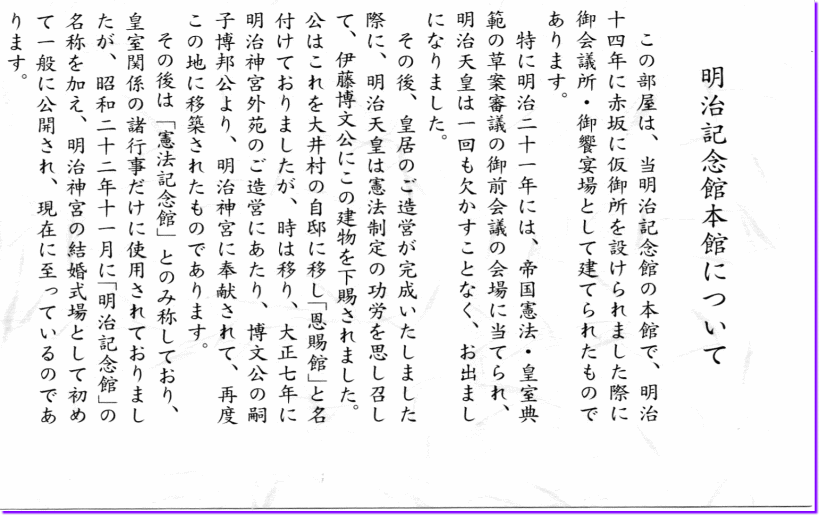 明治記念館本館について
この部屋は、当明治記念館の本館で、明治
十四年に赤坂に仮御所を設けられました際に
御会議所・御饗宴場として建てられたもので
あります。
特に明治二十一年には、帝国憲法・皇室典
範の草案審議の御前会議の会場に当てられ、
明治天皇は一回も欠かすことなく、お出まし
になりました。
その後、皇居のご造営が完成いたしました
際に、明治天皇は憲法制定の功労を思し召し
て、伊藤博文公にこの建物を下賜されました。
公はこれを大井村の自邸に移し「恩賜館」と名
付けておりましたが、時は移り、大正七年に
明治神宮外苑のご造営にあたり、博文公の嗣
子博邦公より、明治神宮に奉献されて、再度
この地に移築されたものであります。
その後は「憲法記念館」とのみ称しており、
皇室関係の諸行事だけに使用されておりまし
たが、昭和二十二年十一月に「明治記念館」の
名称を加え、明治神宮の結婚式場として初め
て一般に公開され、現在に至っているのであ
ります。